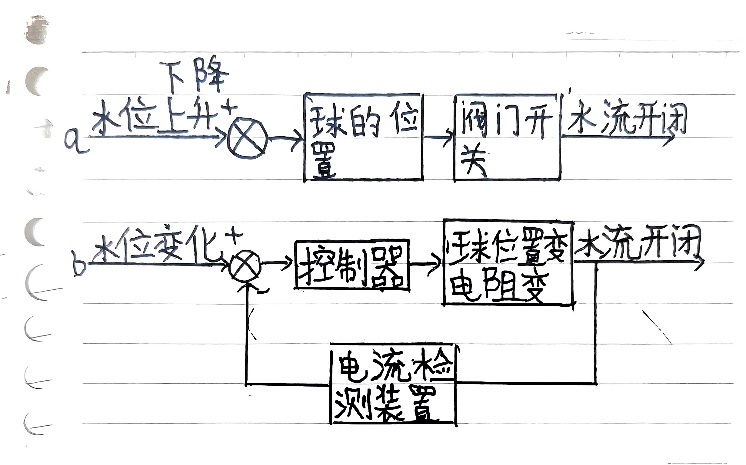 下降
a 水位上升 + 球的位置 阀门开关 水流开闭
b 水位变化 + - 控制器 球位置变 电阻变 水流开闭
电流检测装置